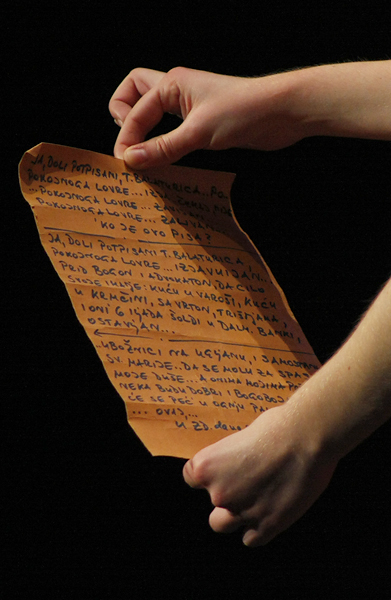 JA, DOLI POTPISANI, T. BALATURICA... PO..
POKOJNOGA LOVRE... IZJA
...POKOJNOGA LOVRE...
POKOJNOGA LOVRE... ŽALIVAN...
KO JE OVO PISA?
JA, DOLI POTPISANI T. BALATURICA,
POKOJNOGA LOVRE... IZJAVUJI DAN...
PRID BOGON I ADVIKATON DA CILO
SVOJE IMANJE: KUĆU U VAROŠI, KUĆU
U KRMČINI, SA VRTON, TRIŠNJAMA,
I ONI 6 IJADA ŠOLDI U DALM. BANKI,
OSTAVJAN...
..UBOŽNICI NA UGLJANU, SAMOSTANU
SV. MARIJE.. DA SE MOLU ZA SPAS
MOJE DUŠE... A ONIMA MOJIMA
NEKA BUDU DOBRI I BOGOBOJ
ĆE SE PEĆ U OGNJU PAK
... OVAJ...
U ZD. dana